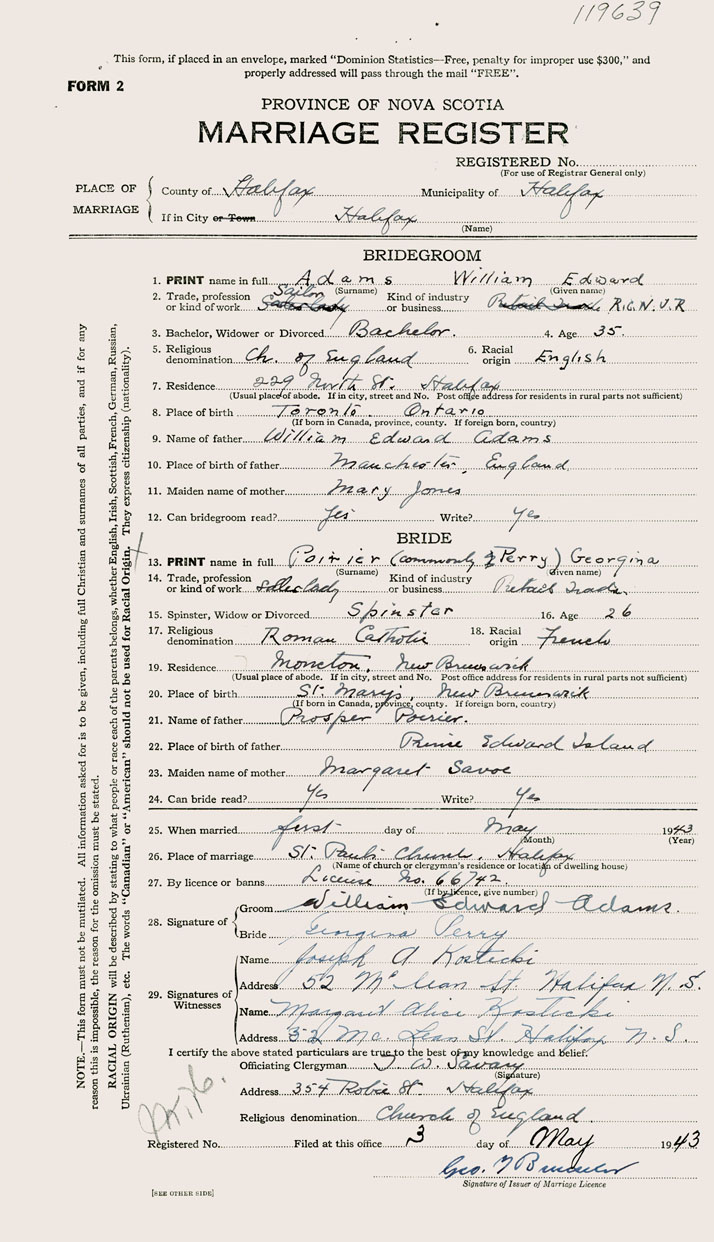 119639
This form, if placed in an envelope, marked "Dominion Statistics—Free, penalty for improper use $300," and
properly addressed will pass through the mail "FREE".
FORM 2
PROVINCE OF NOVA SCOTIA
MARRIAGE REGISTER
REGISTERED No.
(For use of Registrar General only)
PLACE OF MARRIAGE
County of Halifax Municipality of Halifax
If in City or Town Halifax
(Name)
BRIDEGROOM
1. PRINT name in full Adams William Edward
(Surname) (Given name)
2. Trade, profession or kind of work Sailor Kind of industry or business Retail Trade R.C.N.V.R
3. Bachelor, Widower or Divorced Bachelor. 4. Age 35.
5. Religious denomination Ch. of England 6. Racial origin English
7. Residence 229 North St. Halifax
(Usual place of abode. If in city, street and No. Post office address for residents in rural parts not sufficient)
8. Place of birth Toronto. Ontario
(If born in Canada, province, county. If foreign born, country)
9. Name of father William Edward Adams
10. Place of birth of father Manchester, England
11. Maiden name of mother Mary Jones
12. Can bridegroom read? Yes Write? Yes
BRIDE
13. PRINT name in full Poirier (commonly Perry) Georgina
(Surname) (Given name)
14. Trade, profession or kind of work saleslady Kind of industry or business Retail Trade.
15. Spinster, Widow or Divorced Spinster 16. Age 26
17. Religious denomination Roman Catholic 18. Racial origin French
19. Residence Moncton, New Brunswick
(Usual place of abode. If in city, street and No. Post office address for residents in rural parts not sufficient)
20. Place of birth St. Marys, New Brunswick
(If born in Canada, province, county. If foreign born, country)
21. Name of father Prosper Poirier.
22. Place of birth of father Prince Edward Island
23. Maiden name of mother Margaret Savoe
24. Can bride read? Yes Write? Yes
25. When married first day of May 1943
(Month) (Year)
26. Place of marriage St. Pauls Church, Halifax
(Name of church or clergyman's residence or location of dwelling house)
27. By licence or banns License No. 66742.
(If by licence, give number)
28. Signature of
Groom William Edward Adams.
Bride Georgina Perry
29. Signatures of Witnesses
Name Joseph A Kostecki
Address 52 McLean St. Halifax N.S.
Name Margaret Alice Kostecki
Address 52 Mc Lean St. Halifax N.S.
I certify the above stated particulars are true to the best of my knowledge and belief.
Officiating Clergyman T. W. Savary
(Signature)
Address 354 Robie St. Halifax
Religious denomination Church of England
Registered No. Filed at this office 3 day of May 1943
Geo.
Signature of Issuer of Marriage Licence
[SEE OTHER SIDE]
NOTE.—This form must not be mutilated. All information asked for is to be given, including full Christian and surnames of all parties, and if for any
reason this is impossible, the reason for the omission must be stated.
RACIAL ORIGIN will be described by stating to what people or race each of the parents belongs, whether English, Irish, Scottish, French, German, Russian,
Ukrainian (Ruthenian), etc. The words "Canadian" or "American" should not be used for Racial Origin. They express citizenship (nationality).